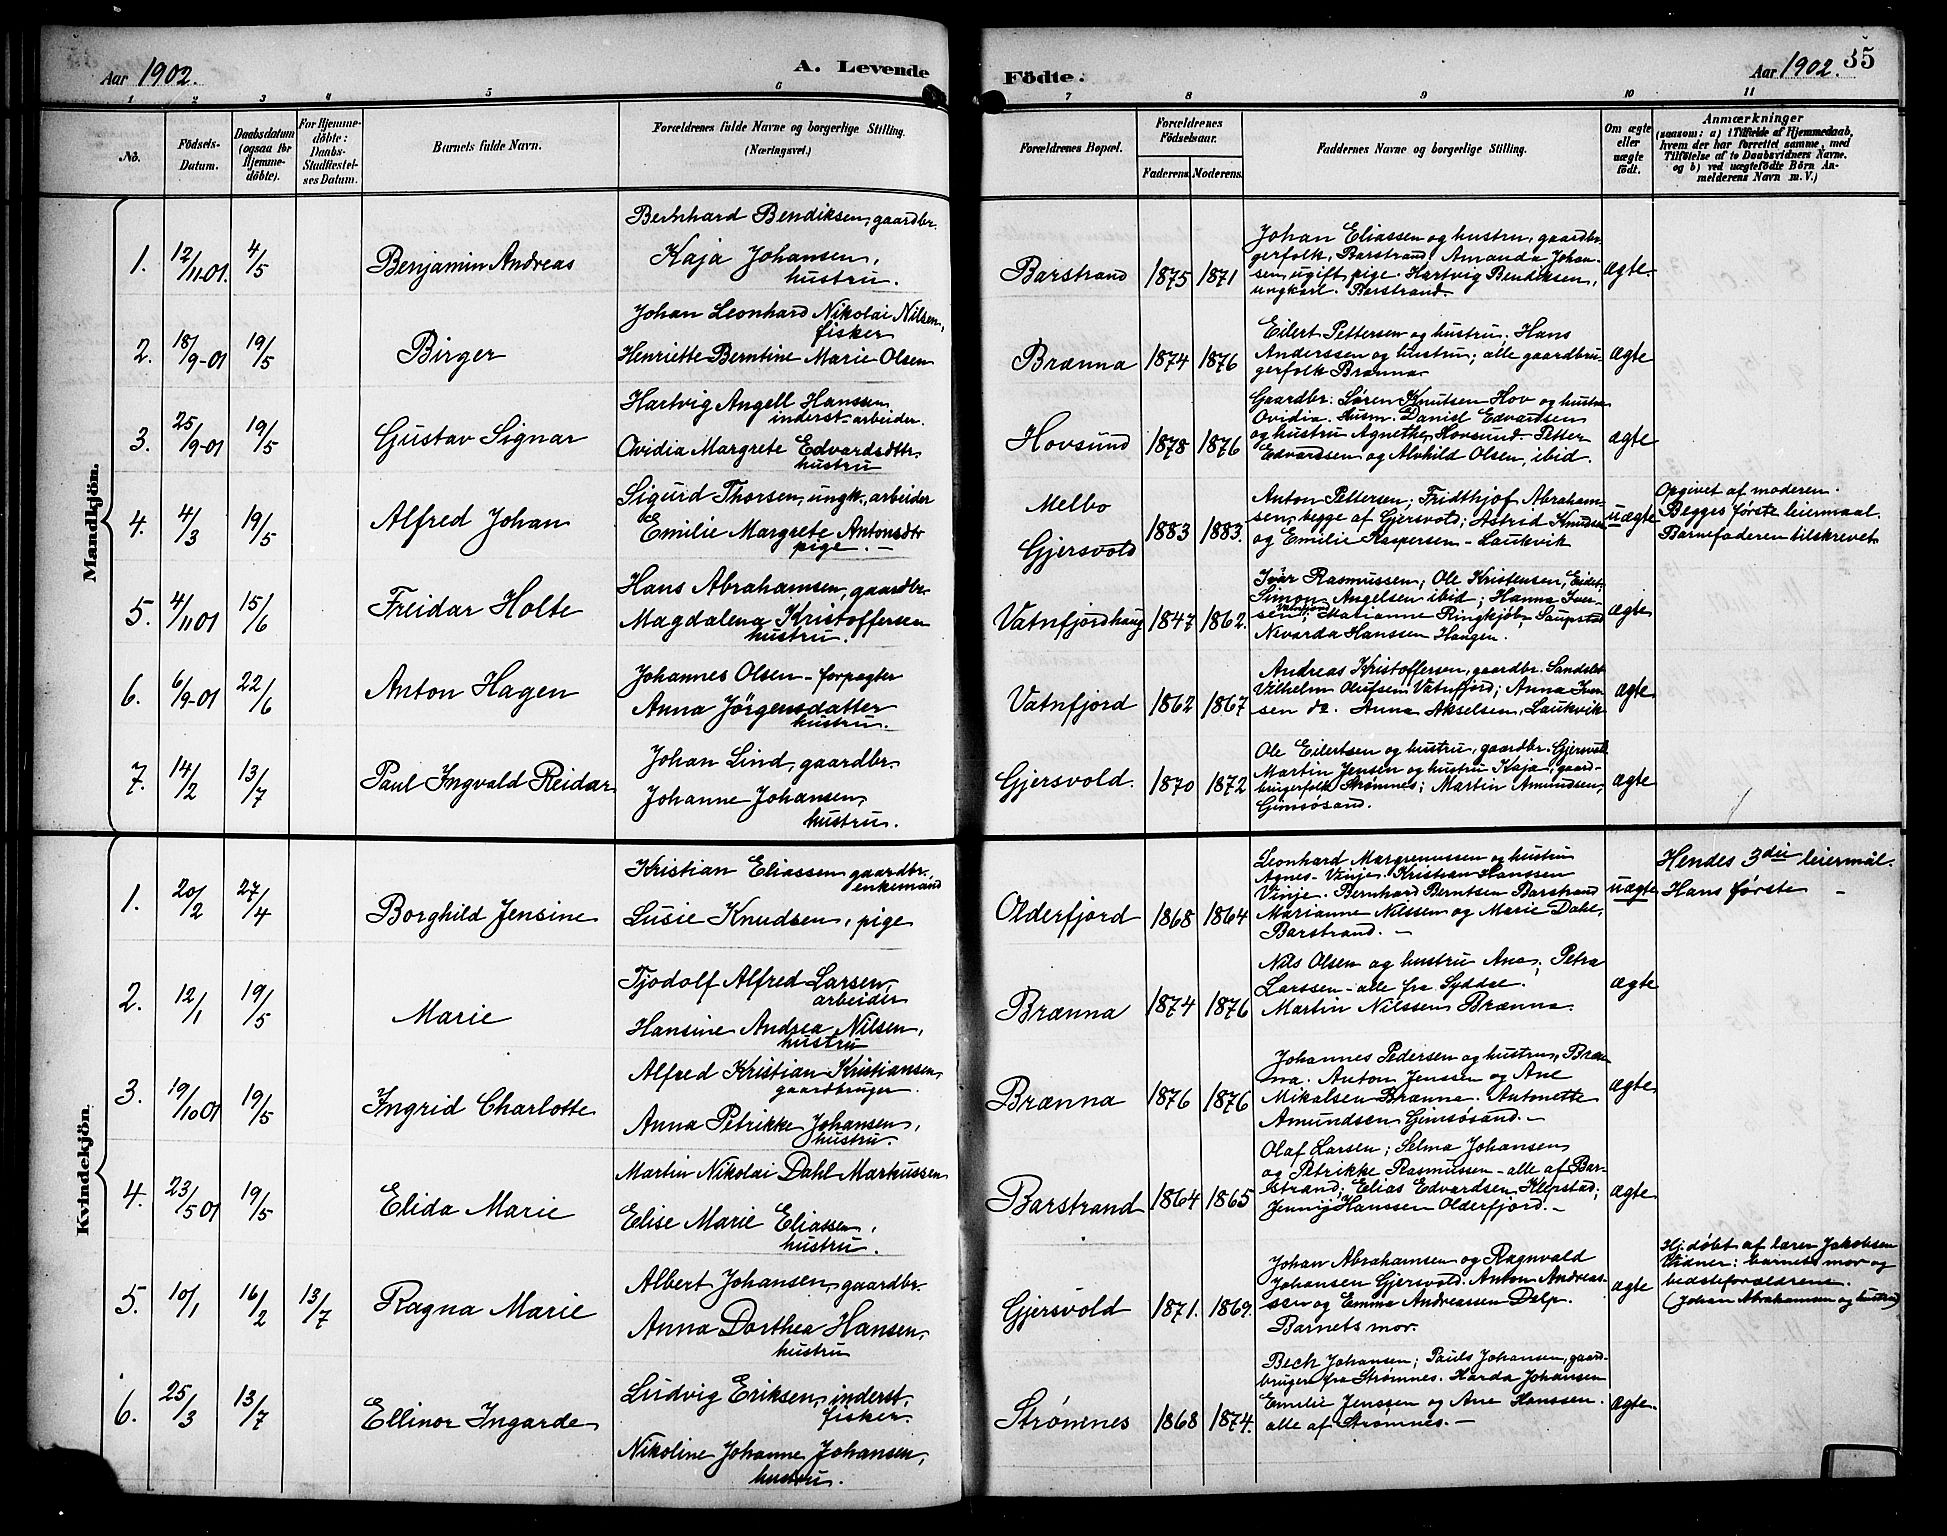 Aar 1902.
A. Levende
Födte.
Aar 1902.
35
1 2 3 4 5 6 7 8 9 10 11
No.
Födsels-
Datum.
Daabsdatum
(ogsaa for
Hjemme-
döbte).
For Hjemme-
döbte:
Daabs-
Stadfæstel-
ses Datum.
Barnets fulde Navn.
Forældrenes fulde Navne og borgerlige Stilling.
(Næringsvei.)
Forældrenes Bopæl.
Forældrenes
Födselsaar.
Faderens. Moderens.
Faddernes Navne og borgerlige Stilling.
Om ægte
eller
uægte
födt.
Anmærkninger
(saasom: a) i Tilfælde af Hjemmedaab,
hvem der har forrettet samme, med
Tilföielse af to Daabsvidners Navne.
og b) ved uægtefödte Börn An-
melderens Navn m. V.)
Mandkjön.
1. 12/11 01. 4/5
Benjamin Andreas
Bernhard Bendiksen, gaardbr.
Kaja Johansen,
hustru.
Barstrand 1875 1871
Johan Eliassen og hustru, gaardbr.
gerfolk, Barstrand, Amanda Johan-
sen, ugift pige. Hartvig Bendiksen,
ungkarl. Barstrand.
ægte.
2. 18/9-01 19/5
Birger
Johan Leonhard Nikolai Nilsen,
fisker
Henriette Berntine Marie Olsen
Brænna 1874 1876
Eilert Pettersen og hustru; Hans
Anderssen og hustru; alle gaardbru-
gerfolk Brænna.
ægte
3. 25/9-01 19/5
Gustav Signar
Hartvig Angell Hanssen
inderst-arbeider.
Ovidia Margrete Edvardsdtr.
hustru
Hovsund 1878 1876
Gaardbr. Søren Knutsen Hov og hustru
Ovidia. Husm. Daniel Edvardsen
og hustru Agnethe, Hovsund. Petter
Edvardsen og Alvhild Olsen, ibid.
ægte
4. 4/3 19/5
Alfred Johan
Sigurd Thorsen, ungk., arbeider
Emilie Margrete Antonsdtr
pige. –
Melbo
Gjersvold
1883 1883.
Anton Pettersen; Fridthjof Abraham-
sen, begge af Gjersvold; Astrid Knudsen
og Emilie Kaspersen – Laukvik
uægte
Opgivet af moderen.
Begges første leiermaal.
Barnefaderen tilskrevet
5. 4/11 01 15/6
Freidar Holte
Hans Abrahamsen, gaardbr.
Magdalena Kristoffersen
hustru.
Vatnfjordhaug 1847 1862.
Ivar Rasmussen; Ole Kristensen, Eidet;
Simon Angelsen ibid; Hanna Iver-
sen, Vatnfjord, Marianne Ringkjøb, Saupstad
Nevarda Hanssen Haugen.
ægte
6. 6/9-01 22/6
Anton Hagen
Johannes Olsen – forpagter
Anna Jörgensdatter
hustru.
Vatnfjord 1862 1867
Andreas Kristoffersen, gaardbr. Sandslet
Vilhelm Olufsen Vatnfjord; Anna Iver-
sen do. Anna Akselsen, Laukvik
ægte
7. 14/2 13/7
Paul Ingvald Reidar
Johan Lind, gaardbr.
Johanne Johansen,
hustru.
Gjersvold. 1870 1872
Ole Eilertsen og hustru, gaardbr. Gjersvold
Martin Jensen og hustru Kaja, gaard-
brugerfolk Strømnes; Martin Amundsen,
Gimsøsand.
ægte
Kvindekjön.
1. 20/2 27/4
Borghild Jensine
Kristian Eliassen gaardbr.
enkemand
Lusie Knudsen, pige
Olderfjord 1868 1864
Leonhard Margrenussen og hustru
Agnes – Vinje. Kristian Hanssen
Vinje. Bernhard Berntsen Barstrand
Marianne Nilssen og Marie Dahl,
Barstrand. –
uægte
Hendes 3die leiermål.
Hans første –
2. 12/1 19/5
Marie
Tjodolf Alfred Larsen,
arbeider
Hansine Andrea Nilsen,
hustru
Brænna 1874 1876
Nils Olsen og hustru Ana; Petra
Larssen – alle fra Syddal.
Martin Nilssen Brænna.
ægte
3. 19/10 01 19/5
Ingrid Charlotte
Alfred Kristian Kristiansen,
gaardbruger
Anna Petrikke Johansen,
hustru.
Brænna 1876 1876
Johannes Pedersen og hustru, Bræn-
na. Anton Jenssen og Ane
Mikalsen Brænna. Antonette
Amundsen Gimsøsand. –
ægte
4. 23/5 01 19/5
Elida Marie
Martin Nikolai Dahl Markussen
Elise Marie Eliassen,
hustru.
Barstrand 1864 1865
Olaf Larsen; Selma Johansen
og Petrikke Rasmussen – alle af Bar-
strand; Elias Edvardsen, Klepstad;
Jenny Hanssen Olderfjord. –
ægte
5. 10/1 16/2 13/7
Ragna Marie
Albert Johansen, gaardbr.
Anna Dorthea Hansen,
hustru
Gjersvold 1871. 1869.
Johan Abrahamsen og Ragnvald
Johansen Gjersvold. Anton Andreas-
sen og Emma Andreassen Delp.
Barnets mor.
ægte
Hj. døbt af lærer Jakobsen
Vidner: barnets mor og
bedsteforældrene.
(Johan Abrahamsen og hustru)
6. 25/3 13/7
Ellinor Ingarde
Ludvig Eriksen, inderst,
fisker.
Nikoline Johanne Johansen,
hustru.
Strømnes 1868 1874.
Bech Johansen; Pauls Johansen, gaard-
bruger fra Strømnes. Harda Johansen
Emilie Jenssen og Ane Hanssen.
alle af Strømnes. –
ægte.